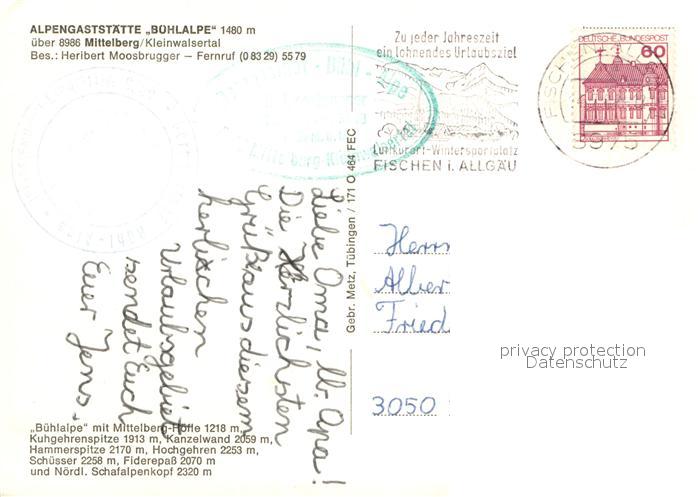 ALPENGASTSTÄTTE „BÜHLALPE" 1480 m
über 8986 Mittelberg/Kleinwalsertal
Bes.: Heribert Moosbrugger — Fernruf (0 83 29) 55 79
Zu jeder Jahreszeit
ein lohnendes Urlaubsziel
Luftkurort-Wintersportplatz
FISCHEN i. ALLGÄU
DEUTSCHE BUNDESPOST
60
8975
Liebe Oma, lb. Opa!
Die Herzlichsten
Grüße aus diesem
herlichen
Urlaubsgebiet
sendet Euch
Euer Jens.
Gebr. Metz, Tübingen / 171 O 464 FEC
Herrn
Alber
Fried
3050
privacy protection
Datenschutz
„Bühlalpe" mit Mittelberg-Höfle 1218 m,
Kuhgehrenspitze 1913 m, Kanzelwand 2059 m,
Hammerspitze 2170 m, Hochgehren 2253 m,
Schüsser 2258 m, Fiderepaß 2070 m
und Nördl. Schafalpenkopf 2320 m